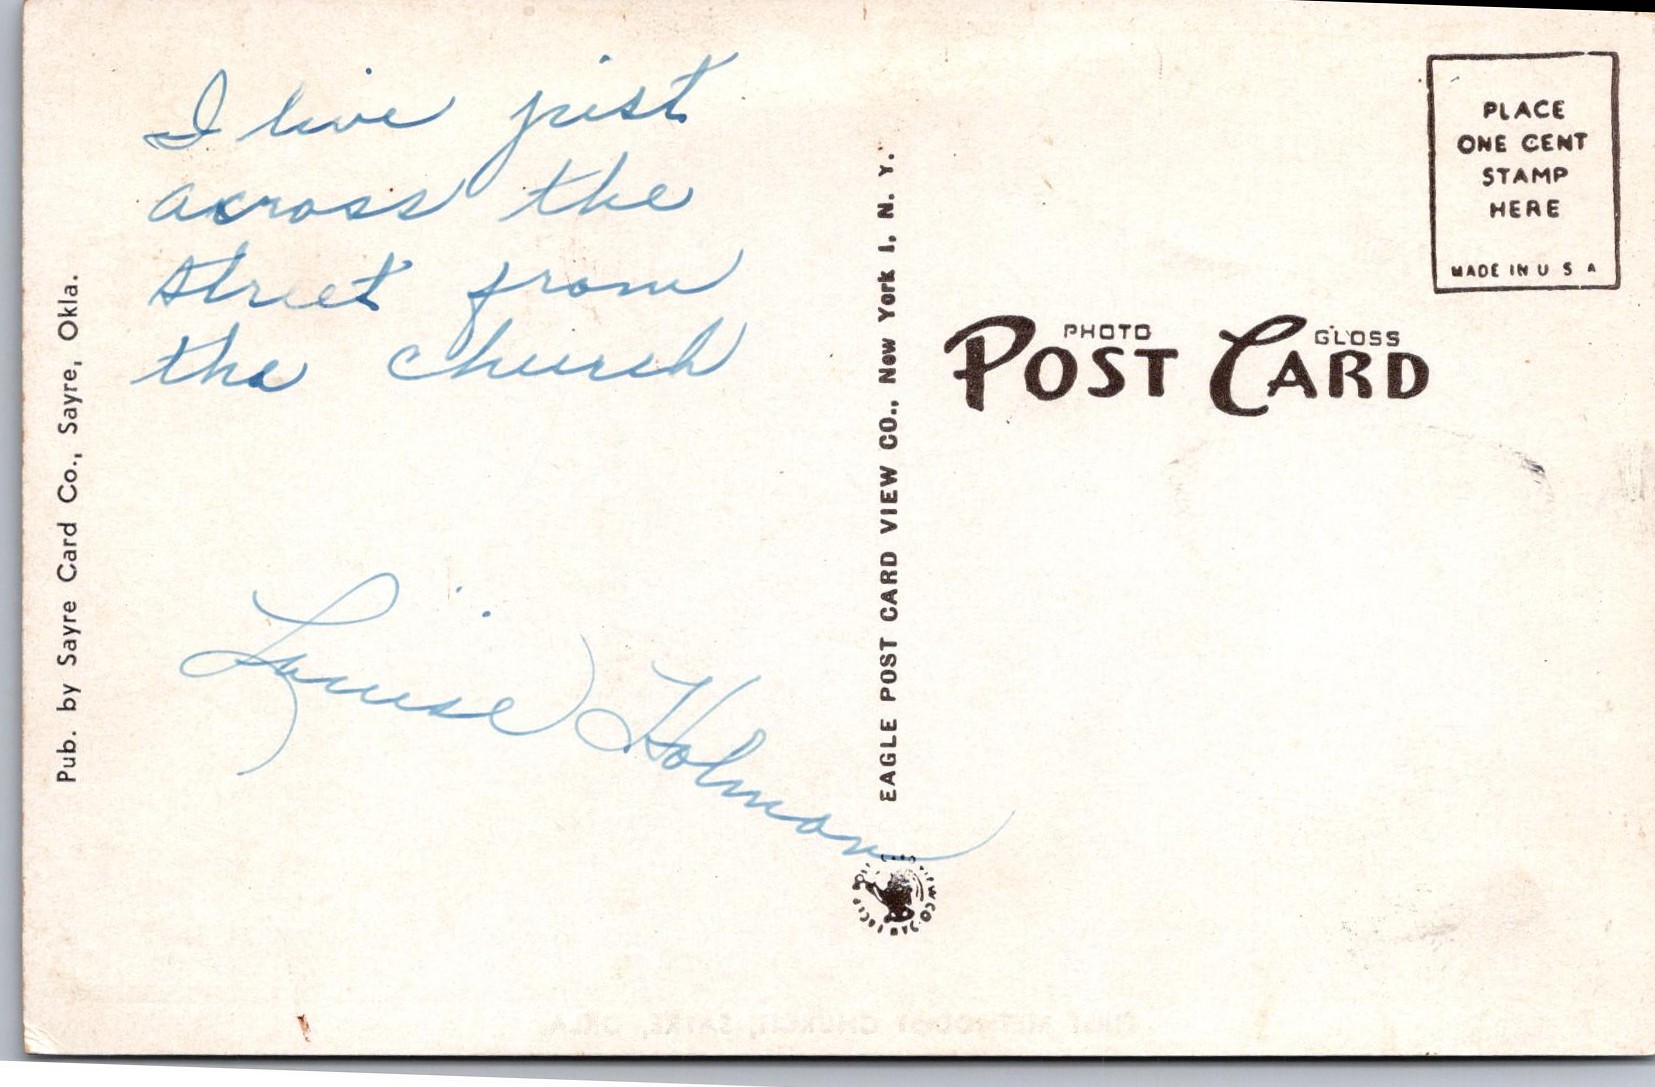 I live just
across the
street from
the church
Louise Holman
Pub. by Sayre Card Co., Sayre, Okla.
EAGLE POST CARD VIEW CO., New York 1, N. Y.
PLACE
ONE CENT
STAMP
HERE
MADE IN U S A
PHOTO GLOSS
POST CARD
FIRST METHODIST CHURCH, SAYRE, OKLA.